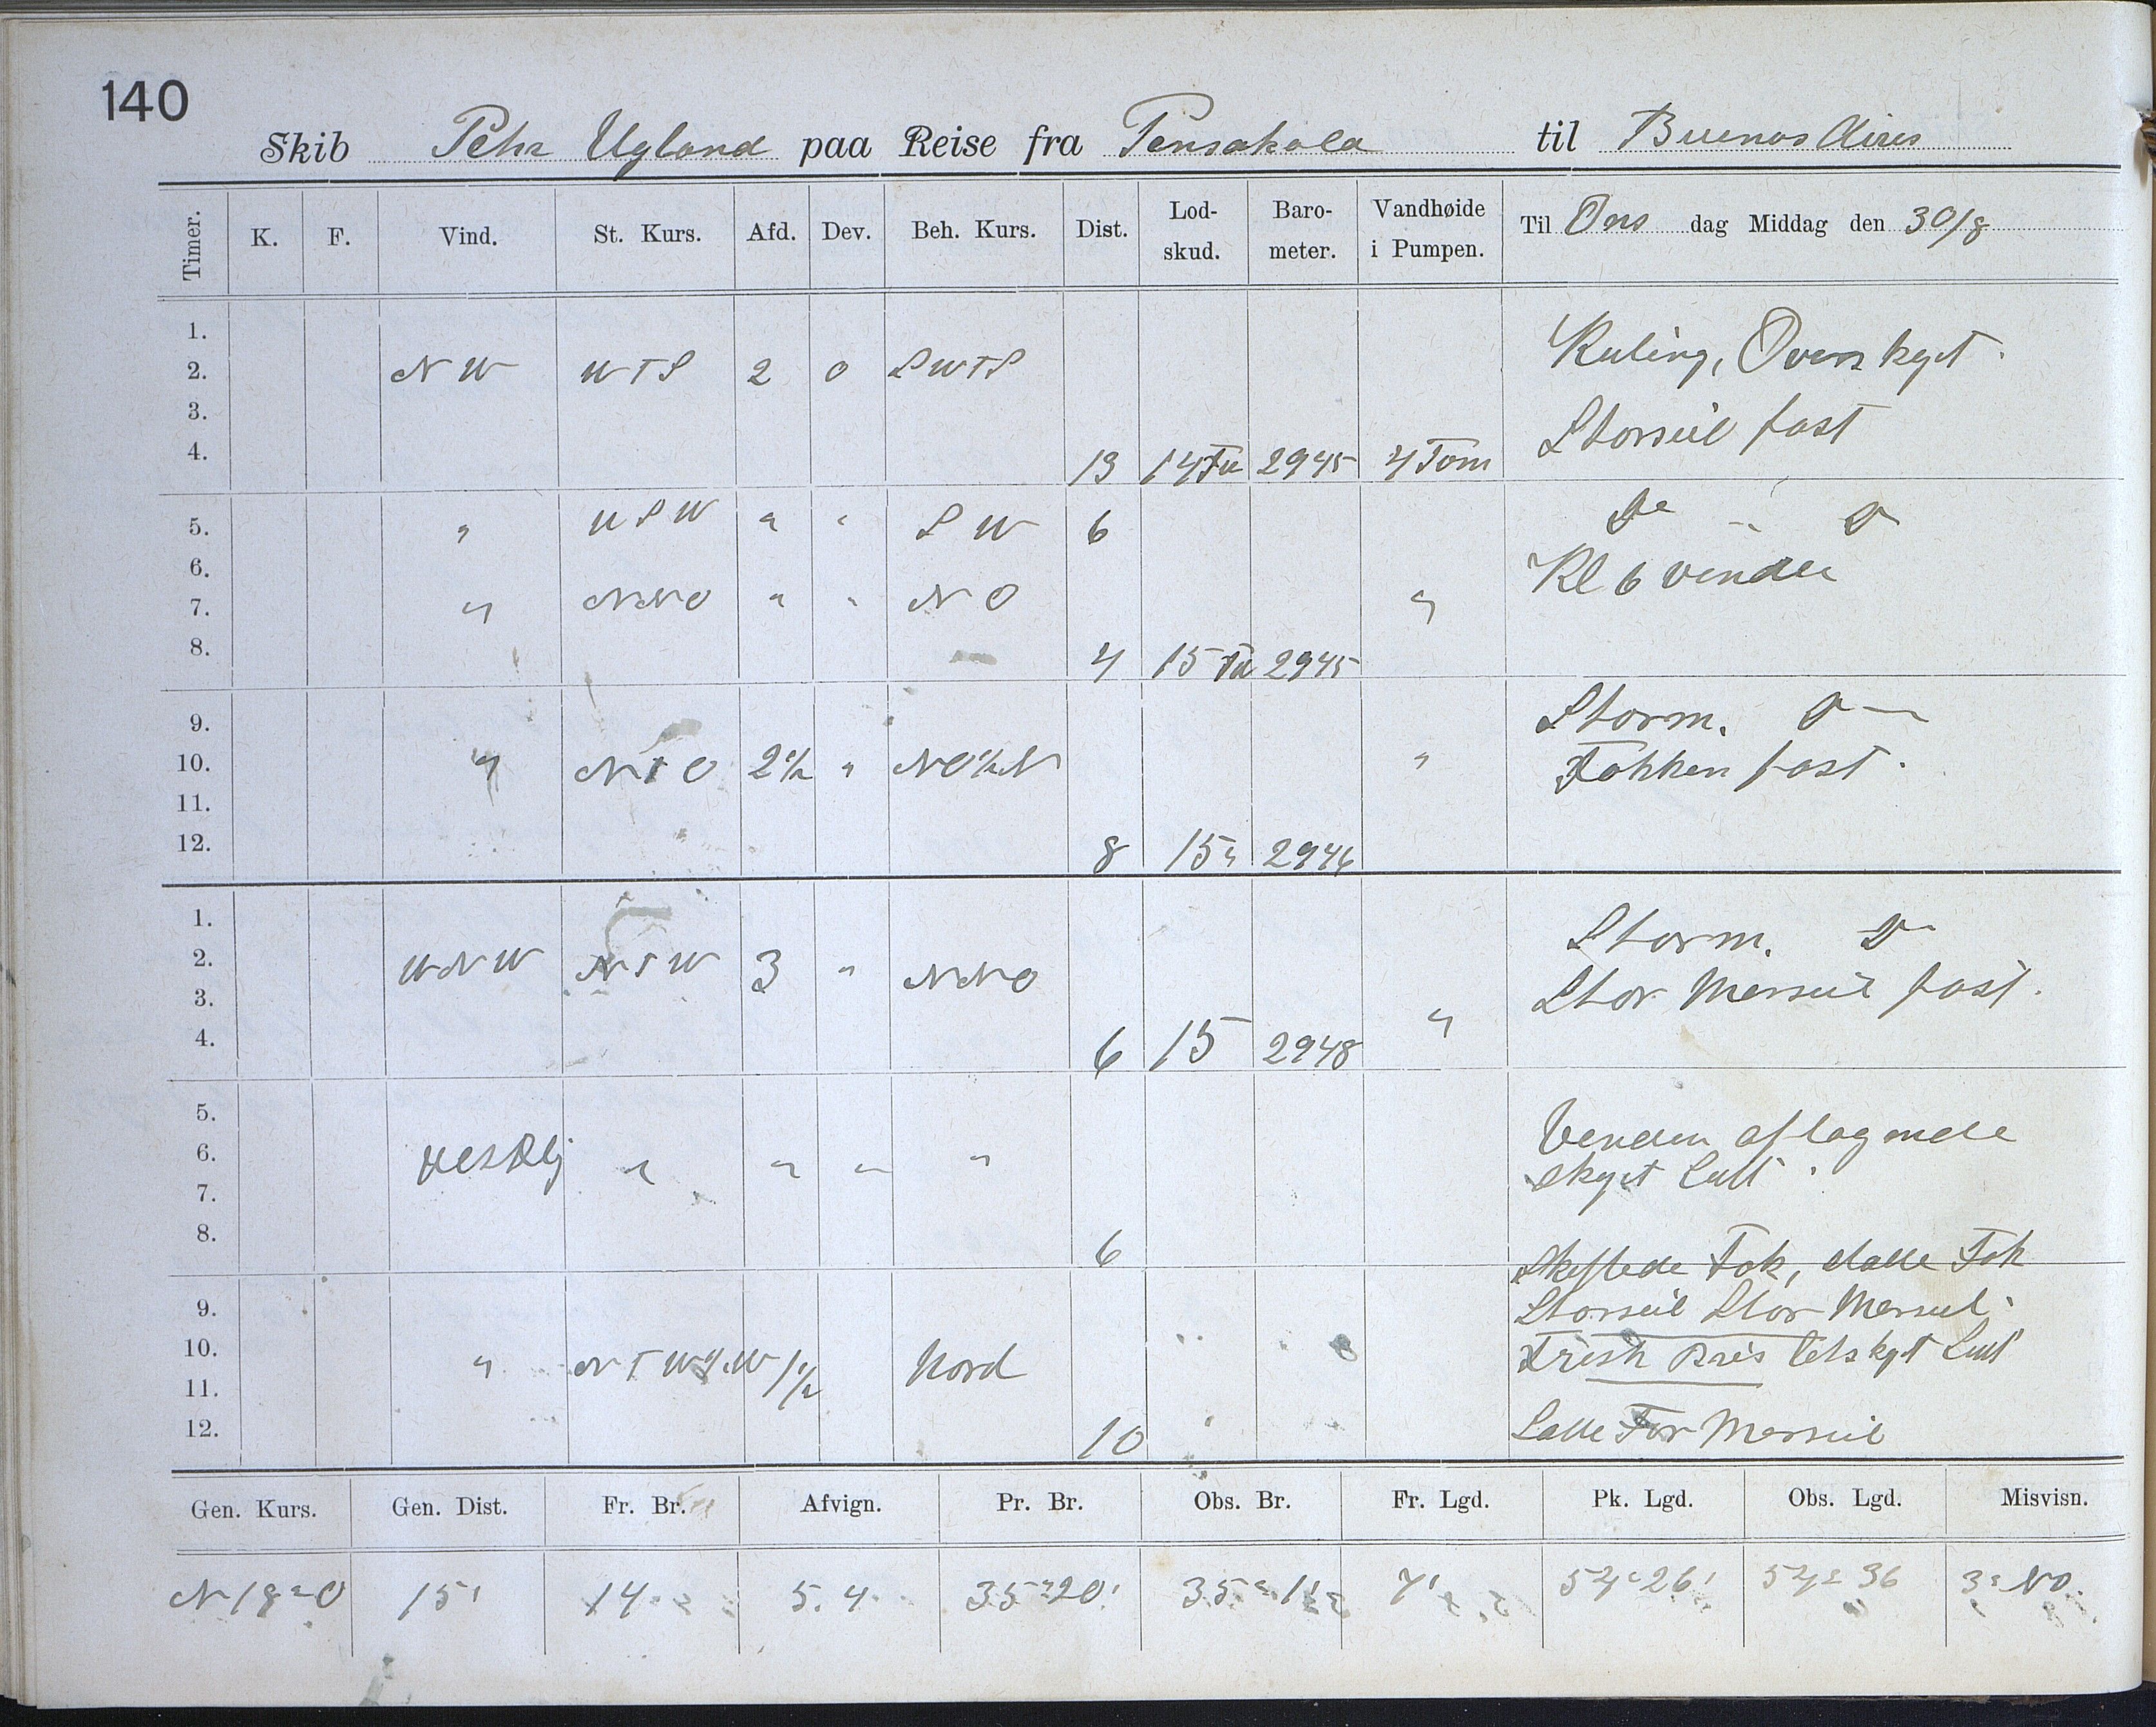 140
Skib Peter Ugland paa Reise fra Pensakola til Buenos Aires
Timer. K. F. Vind. St. Kurs. Afd. Dev. Beh. Kurs. Dist. Lod-skud. Baro-meter. Vandhøide i Pumpen. Til Ons dag Middag den 30/8
1. Kuling, Overskyet.
2. NW WTS 2 0 SWTS
3. Storseil fast
4. 13 14 Fv 2945 4 Tom
5. " WSW " " SW 6 Do " D
6. Kl 6 vendte
7. " NNO " " NO "
8. 4 15 Fv 2945
9. Storm. D "
10. " NTO 2½ " NO½N " Fokken fast.
11.
12. 8 15 " 2946
1. Storm. D "
2. WNW NTW 3 " NNO
3. Stor Merseil fast.
4. 6 15 2948 "
5. Venden aflagende
6. Vestlig " " " "
7. skyet Luft.
8. 6
Skiftede Fok, satte Fok
9. Storseil Stor Merseil.
10. " NTW½W 1½ Nord Frisk Bris letskyt Luft
11.
12. 10 Satte For Merseil
Gen. Kurs. Gen. Dist. Fr. Br. Afvign. Pr. Br. Obs. Br. Fr. Lgd. Pk. Lgd. Obs. Lgd. Misvisn.
N 18° O 15' 14 5.4 35°20' 35° 1' 7' 54°26' 54° 36 3° NO.